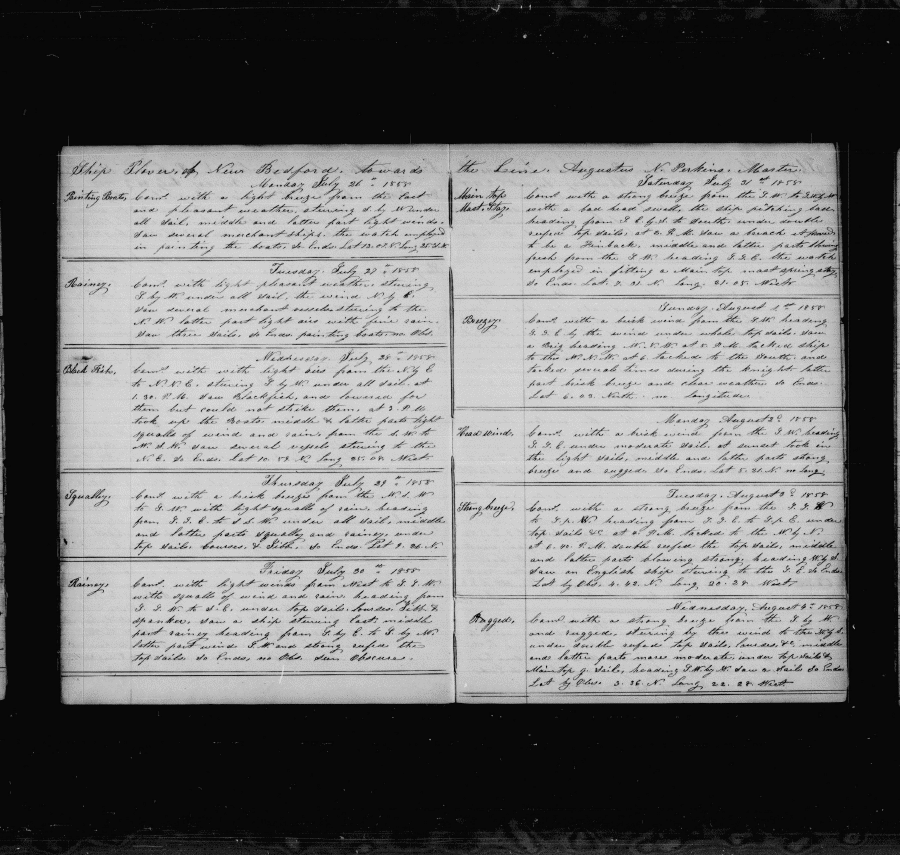 Ship Plover, of New Bedford, towards
Monday July 26th 1858
Painting Boats, Comd. with a light breeze from the East
and pleasant weather, steering S. by W. under
all sail, middle and latter part light winds.
Saw several merchant ships. the watch employed
in painting the boats, So Ends. Lat
Tuesday July 27th 1858
Rainey. Comd. with light pleasant weather, steering
S. by W. under all sail, the wind N. by E.
Saw several merchant vessels steering to the
N. W. latter part light airs with fine rain.
Saw three sails. So Ends painting boats. no Obs.
Wednesday July 28th 1858
Black Fish, Comd. with with light airs from the N. by E.
to N. N. E. steering S. by W. under all sail. at
1.30. P. M. Saw Blackfish, and lowered for
them but could not strike them. at 3. P. M
took up the Boats. middle & latter parts light
squalls of wind and rain, from the S. W. to
W. S. W. Saw several vessels steering to the
N. E. So Ends. Lat 10. 54 N. Long 25. 08. West
Thursday July 29th 1858
Squally. Comd. with a brisk breeze from the W. S. W
to S. W. with light squalls of rain. heading
from S. S. E. to S. S. W. under all sail. middle
and latter parts squally and rainey, under
top sails. Courses. & Jibb. So Ends. Lat 9. 26. N.
Friday July 30th 1858
Rainey. Comd. with light winds from West to S. S. W.
with squalls of wind and rain. heading from
S. S. W. to S. E. under top sails. Courses. Jibb. &
spanker. Saw a ship steering East. middle
part rainey heading from S. by E. to S. by W.
latter part wind S. W. and strong reefed the
top sails So Ends, no Obs. Sun Obscure.
the Line. Augustus N. Perkins. Master.
Saturday July 31st 1858.
Main top Comd. with a strong breeze from the S. W. to
Mast Stay. with a bad head swell, the ship pitching bad.
heading from S. E. by S. to South. under double
reefed top sails. at 2. P. M. Saw a breach it proved
to be a Finback. middle and latter parts blowing
fresh from the S. W. heading S. S. E. the watch
employed in fitting a Main top mast spring stay,
So Ends. Lat. 7. 21. N. Long. 21. 05. West
Sunday. August 1st 1858
Breezy. Comd. with a brisk wind from the S. W. heading
S. S. E. by the wind under whole top sails. Saw
a Brig heading W. N. W. at 5. P. M. tacked ship
to the W. N. W. at 6. tacked to the South. and
tacked several times during the Knight. latter
part brisk breeze and clear weather So Ends.
Lat 6. 03. North. no Longitude
Monday August 2d 1858
Head Wind. Comd. with a brisk wind from the S. W. heading
S. S. E. under moderate sail. at sunset took in
the light sails, middle and latter parts strong
breeze and rugged. So Ends. Lat 5. 21. N. no Long.
Tuesday. August 3d 1858
Strong breeze. Comd. with a strong breeze from the S. S. W
to S. by W. heading from S. S. E. to S. by E. under
top sails &c. at 2. P. M. tacked to the W. by N.
at 6. P. M. double reefed the top sails, middle
and latter parts blowing strong. heading W. by S.
Saw an English ship steering to the S. E. So Ends
Lat by Obs. 4. 42. N. Long 20. 28. West
Wednesday August 4th 1858
Rugged. Comd. with a strong breeze from the S. by W.
and rugged. steering by the wind to the
under double reefed top sails, Courses, &c, middle
and latter parts more moderate, under top sails &
Main top g. sail, heading S. W. by W. Saw a sail So Ends
Lat by Obs. 3. 36. N. Long 22. 28. West